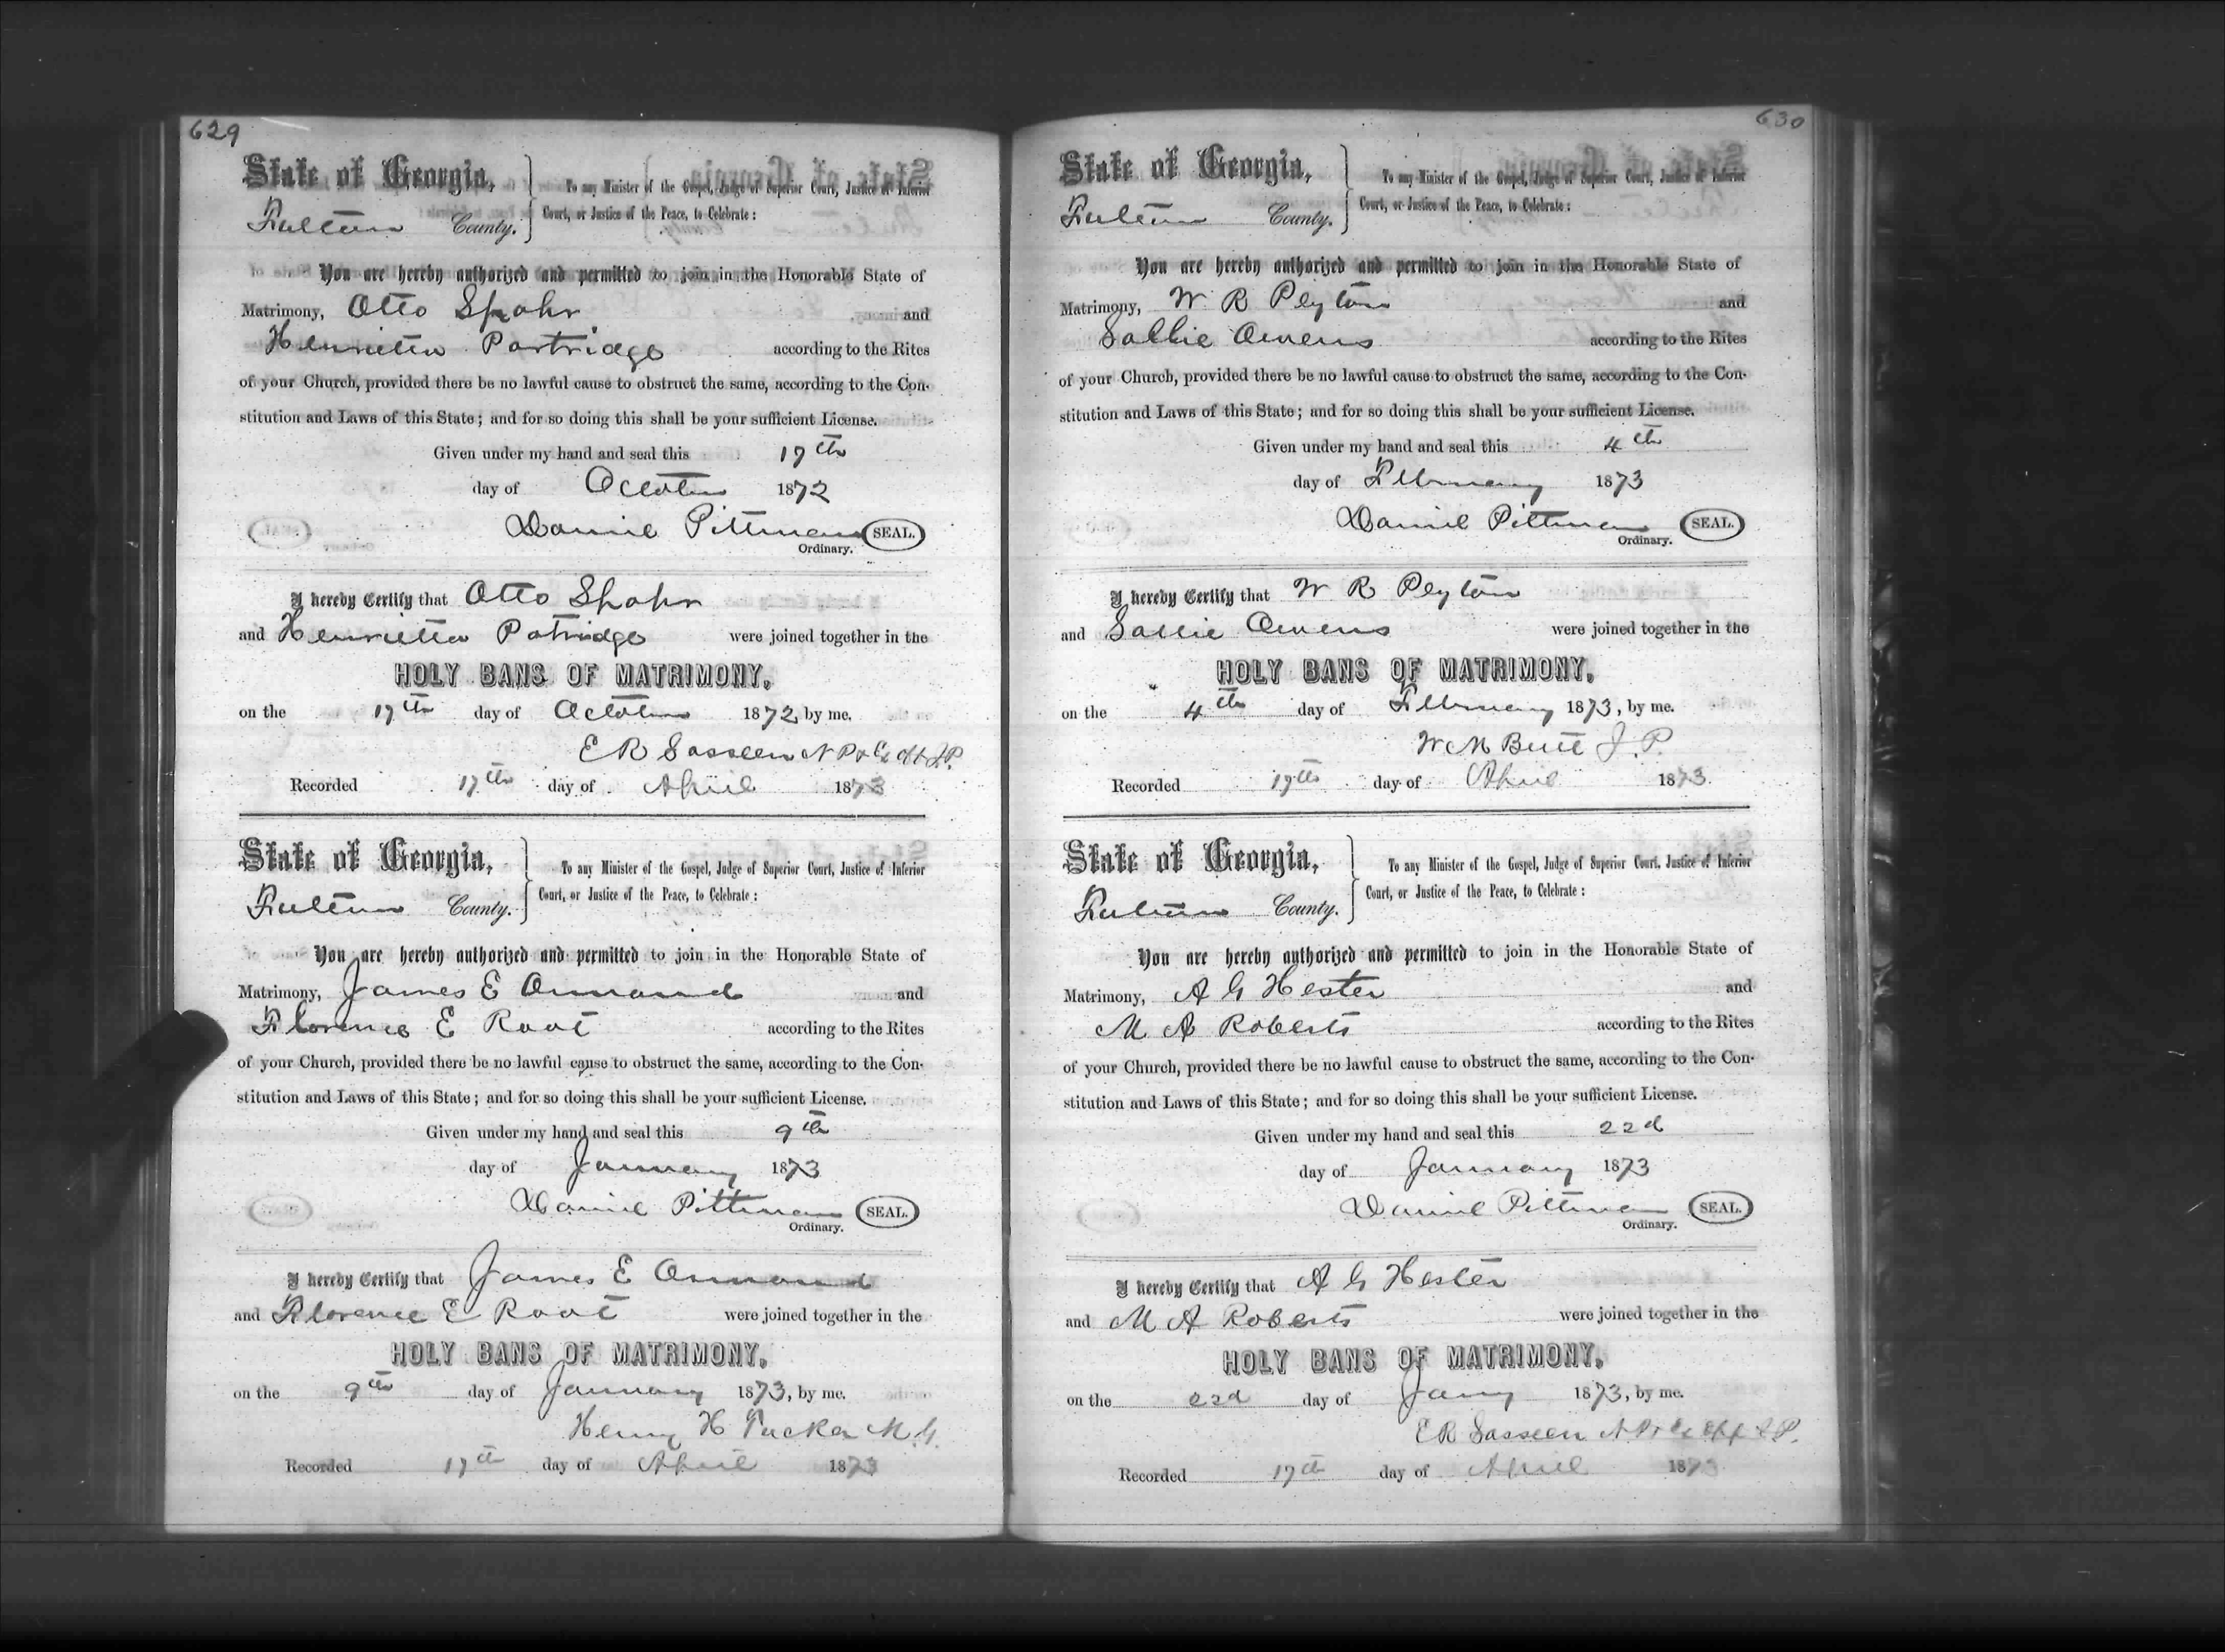 629
State of Georgia,
Fulton County.
To any Minister of the Gospel, Judge of Superior Court, Justice of Inferior
Court, or Justice of the Peace, to Celebrate:
You are hereby authorized and permitted to join in the Honorable State of
Matrimony, Otto Spahr and
Henrietta Partridge according to the Rites
of your Church, provided there be no lawful cause to obstruct the same, according to the Con-
stitution and Laws of this State; and for so doing this shall be your sufficient License.
Given under my hand and seal this 17th
day of October 1872
Daniel Pittman SEAL.
Ordinary.
I hereby Certify that Otto Spahr
and Henrietta Patridge were joined together in the
HOLY BANS OF MATRIMONY,
on the 17th day of October 1872, by me.
E R Sasseen N P & Ex Off J.P.
Recorded 17th day of April 1873
State of Georgia,
Fulton County.
To any Minister of the Gospel, Judge of Superior Court, Justice of Inferior
Court, or Justice of the Peace, to Celebrate:
You are hereby authorized and permitted to join in the Honorable State of
Matrimony, James E Ormand and
Florence E Root according to the Rites
of your Church, provided there be no lawful cause to obstruct the same, according to the Con-
stitution and Laws of this State; and for so doing this shall be your sufficient License.
Given under my hand and seal this 9th
day of January 1873
Daniel Pittman SEAL.
Ordinary.
I hereby Certify that James E Ormand
and Florence E Root were joined together in the
HOLY BANS OF MATRIMONY,
on the 9th day of January 1873, by me.
Henry H Tucker M.G.
Recorded 17th day of April 1873
630
State of Georgia,
Fulton County.
To any Minister of the Gospel, Judge of Superior Court, Justice of Inferior
Court, or Justice of the Peace, to Celebrate:
You are hereby authorized and permitted to join in the Honorable State of
Matrimony, W R Peyton and
Sallie Owens according to the Rites
of your Church, provided there be no lawful cause to obstruct the same, according to the Con-
stitution and Laws of this State; and for so doing this shall be your sufficient License.
Given under my hand and seal this 4th
day of February 1873
Daniel Pittman SEAL.
Ordinary.
I hereby Certify that W R Peyton
and Sallie Owens were joined together in the
HOLY BANS OF MATRIMONY,
on the 4th day of February 1873, by me.
W M Butt J.P.
Recorded 17th day of April 1873.
State of Georgia,
Fulton County.
To any Minister of the Gospel, Judge of Superior Court, Justice of Inferior
Court, or Justice of the Peace, to Celebrate:
You are hereby authorized and permitted to join in the Honorable State of
Matrimony, A G Hester and
M A Roberts according to the Rites
of your Church, provided there be no lawful cause to obstruct the same, according to the Con-
stitution and Laws of this State; and for so doing this shall be your sufficient License.
Given under my hand and seal this 22d
day of January 1873
Daniel Pittman SEAL.
Ordinary.
I hereby Certify that A G Hester
and M A Roberts were joined together in the
HOLY BANS OF MATRIMONY,
on the 22d day of Jany 1873, by me.
E R Sasseen N P & Ex Off J.P.
Recorded 17th day of April 1873